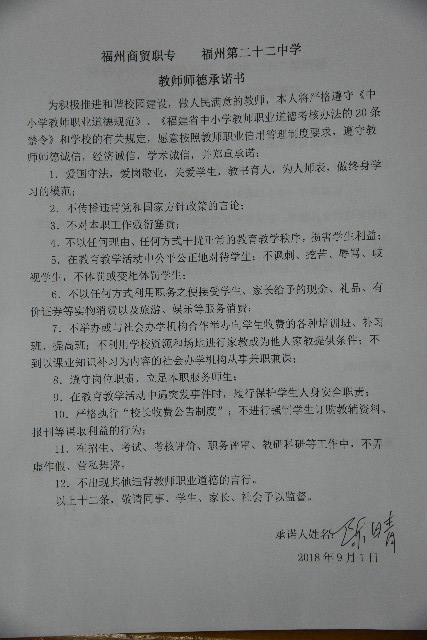 福州商贸职专 福州第二十二中学
教师师德承诺书
为积极推进和谐校园建设，做人民满意的教师，本人将严格遵守《中
小学教师职业道德规范》、《福建省中小学教师职业道德考核办法的20条
禁令》和学校的有关规定，愿意按照教师职业信用管理制度要求，遵守教
师师德诚信，经济诚信，学术诚信，并郑重承诺：
1．爱国守法，爱岗敬业，关爱学生，教书育人，为人师表，做终身学
习的模范；
2．不传播违背党和国家方针政策的言论；
3．不对本职工作敷衍塞责；
4．不以任何理由、任何方式干扰正常的教育教学秩序，损害学生利益；
5．在教育教学活动中公平公正地对待学生；不讽刺、挖苦、辱骂、歧
视学生，不体罚或变相体罚学生；
6．不以任何方式利用职务之便接受学生、家长给予的现金、礼品、有
价证券等实物消费以及旅游、娱乐等服务消费；
7．不举办或与社会办学机构合作举办向学生收费的各种培训班、补习
班、提高班；不利用学校资源和场地进行家教或为他人家教提供条件；不
到以课业知识补习为内容的社会办学机构从事兼职兼课；
8．遵守岗位职责，立足本职服务师生；
9．在教育教学活动中遇突发事件时，履行保护学生人身安全职责；
10．严格执行“校长收费公告制度”；不进行强制学生订购教辅资料、
报刊等谋取利益的行为；
11．在招生、考试、考核评价、职务评审、教研科研等工作中，不弄
虚作假、营私舞弊。
12．不出现其他违背教师职业道德的言行。
以上十二条，敬请同事、学生、家长、社会予以监督。
承诺人姓名：陈晴
2018年9月1日